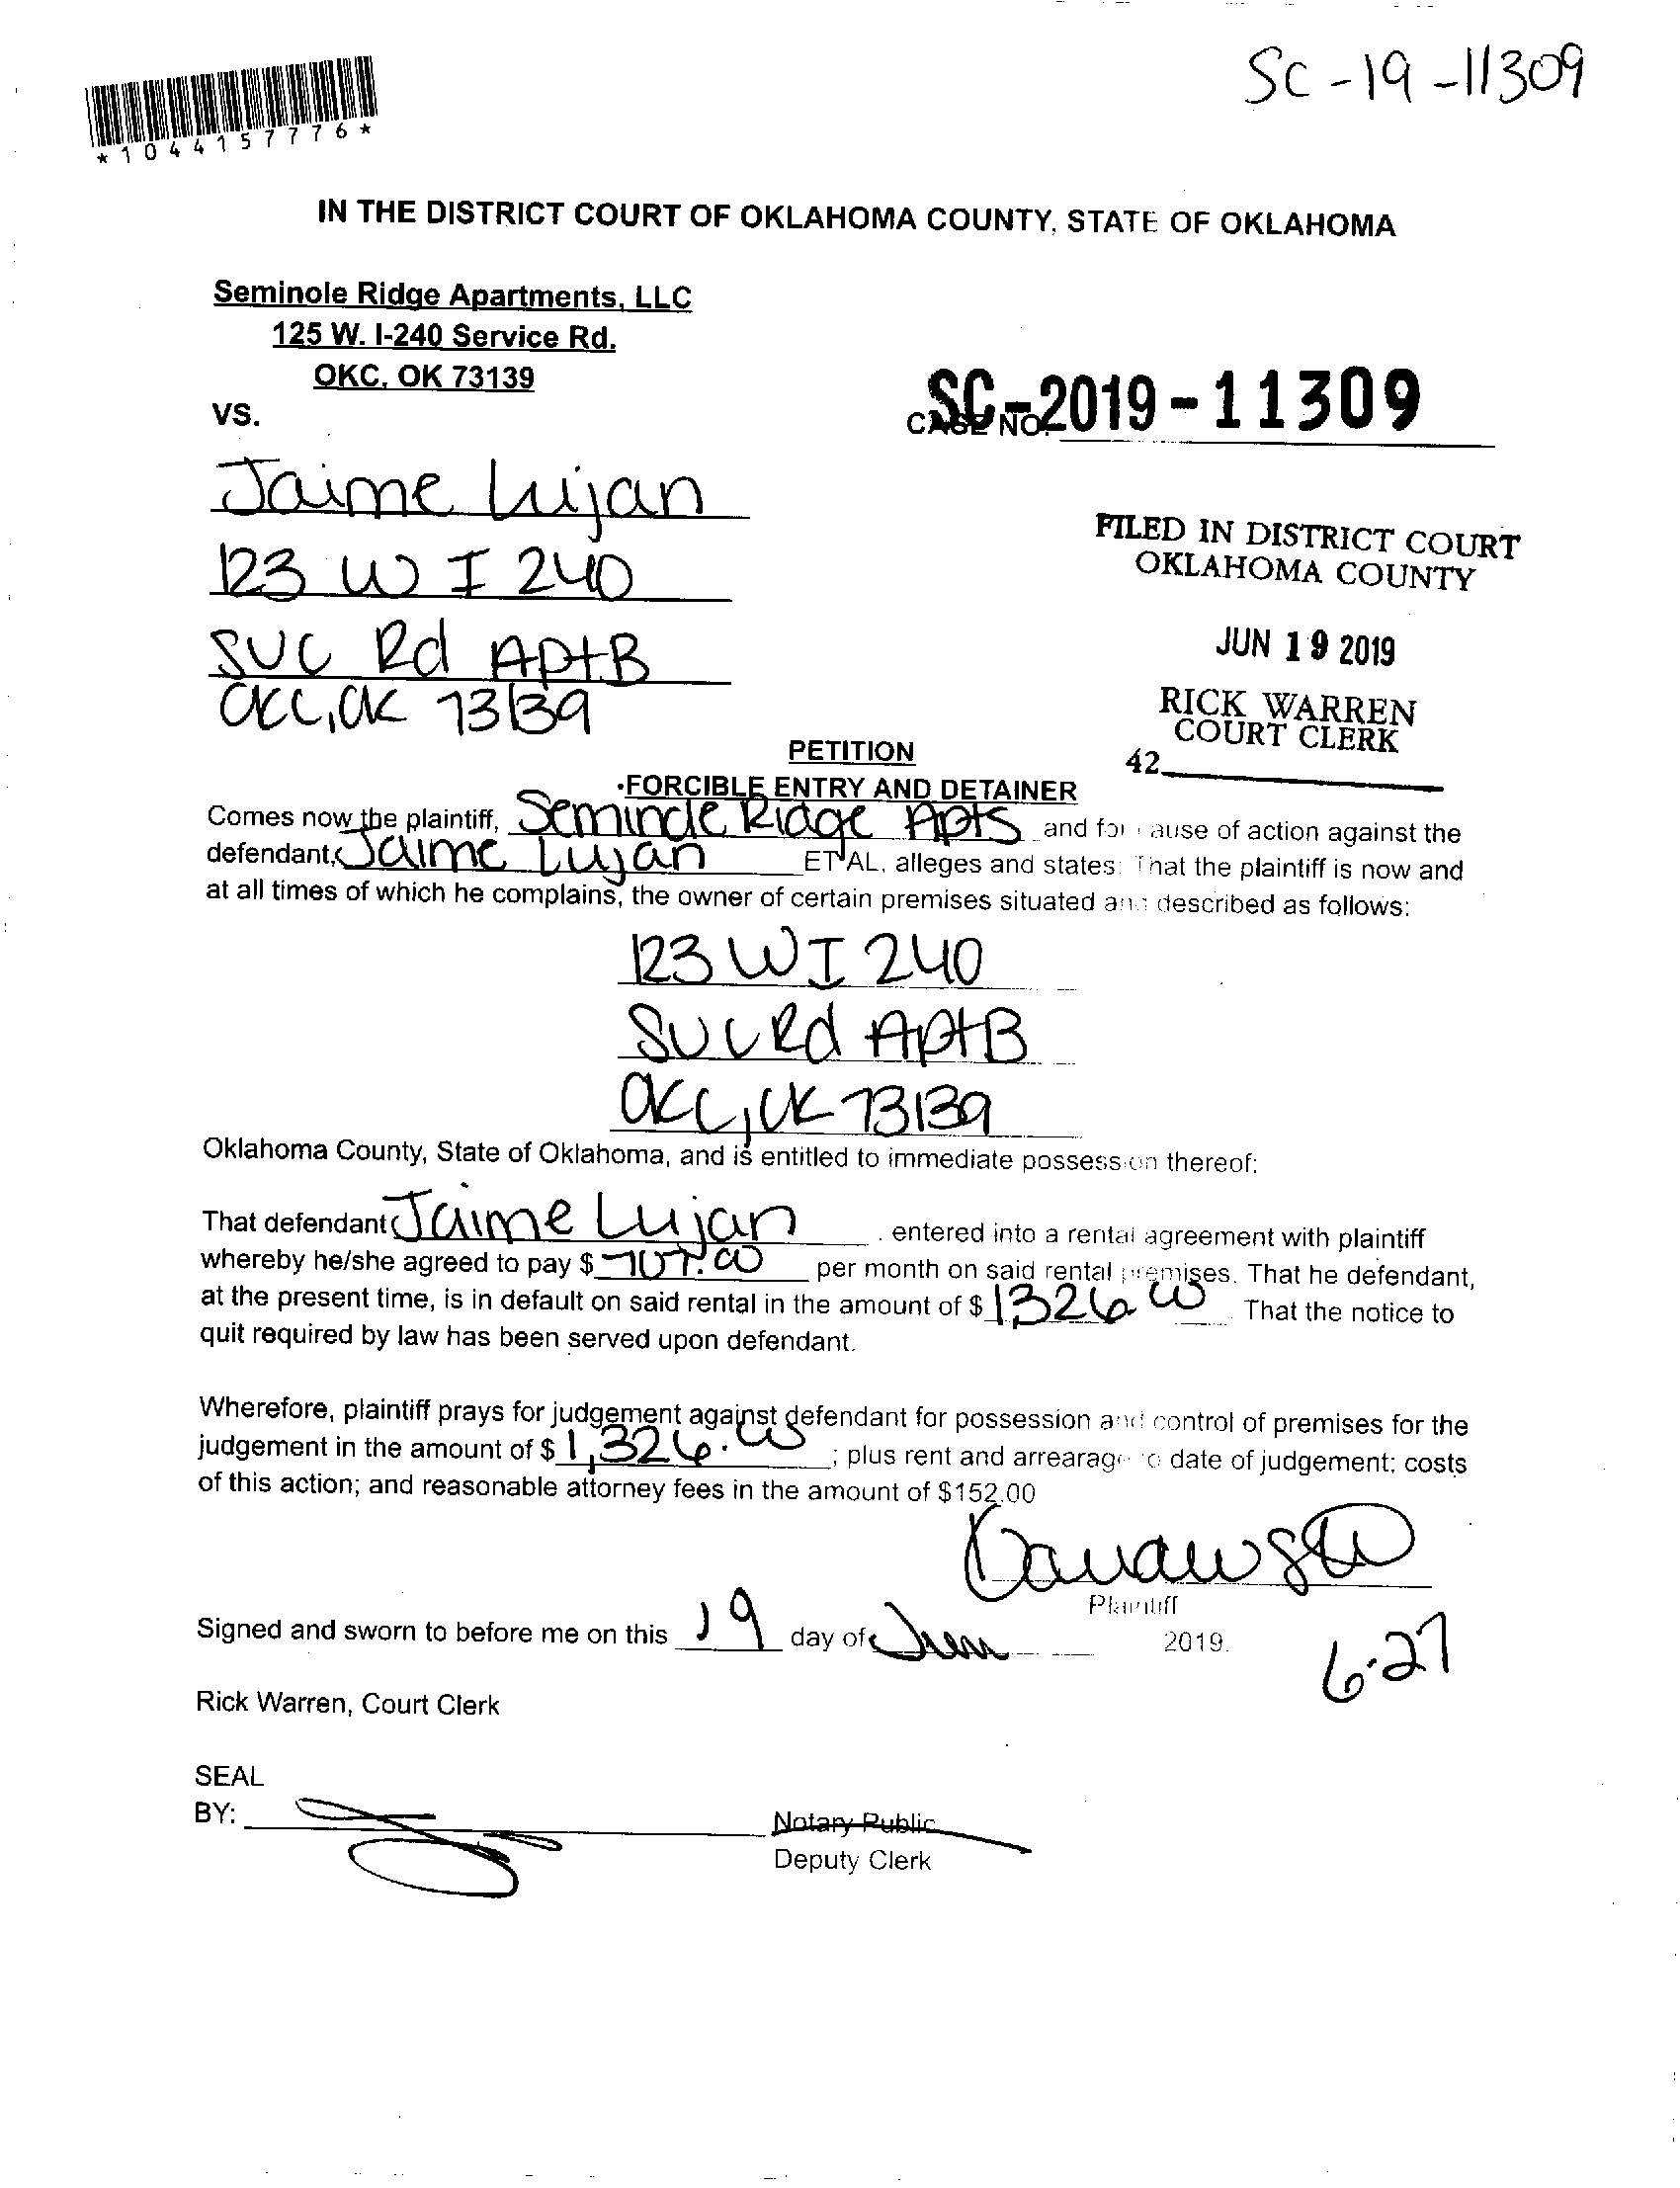 SC-19-11309
*1044157776*
IN THE DISTRICT COURT OF OKLAHOMA COUNTY, STATE OF OKLAHOMA
Seminole Ridge Apartments, LLC
125 W. I-240 Service Rd.
OKC, OK 73139
VS.
CASE NO. SC-2019-11309
Jaime Lujan
123 W I 240
SVC Rd Apt B
OKC, OK 73139
FILED IN DISTRICT COURT
OKLAHOMA COUNTY
JUN 19 2019
RICK WARREN
COURT CLERK
42
PETITION
FORCIBLE ENTRY AND DETAINER
Comes now the plaintiff, Seminole Ridge Apts and for cause of action against the
defendant, Jaime Lujan ET AL, alleges and states: That the plaintiff is now and
at all times of which he complains, the owner of certain premises situated and described as follows:
123 W I 240
SVC Rd Apt B
OKC, OK 73139
Oklahoma County, State of Oklahoma, and is entitled to immediate possession thereof:
That defendant Jaime Lujan, entered into a rental agreement with plaintiff
whereby he/she agreed to pay $ 707.00 per month on said rental premises. That he defendant,
at the present time, is in default on said rental in the amount of $ 1326 00. That the notice to
quit required by law has been served upon defendant.
Wherefore, plaintiff prays for judgement against defendant for possession and control of premises for the
judgement in the amount of $ 1,326.00; plus rent and arrearage to date of judgement; costs
of this action; and reasonable attorney fees in the amount of $152.00
Plaintiff
Signed and sworn to before me on this 19 day of June 2019.
6-27
Rick Warren, Court Clerk
SEAL
BY:
Notary Public
Deputy Clerk